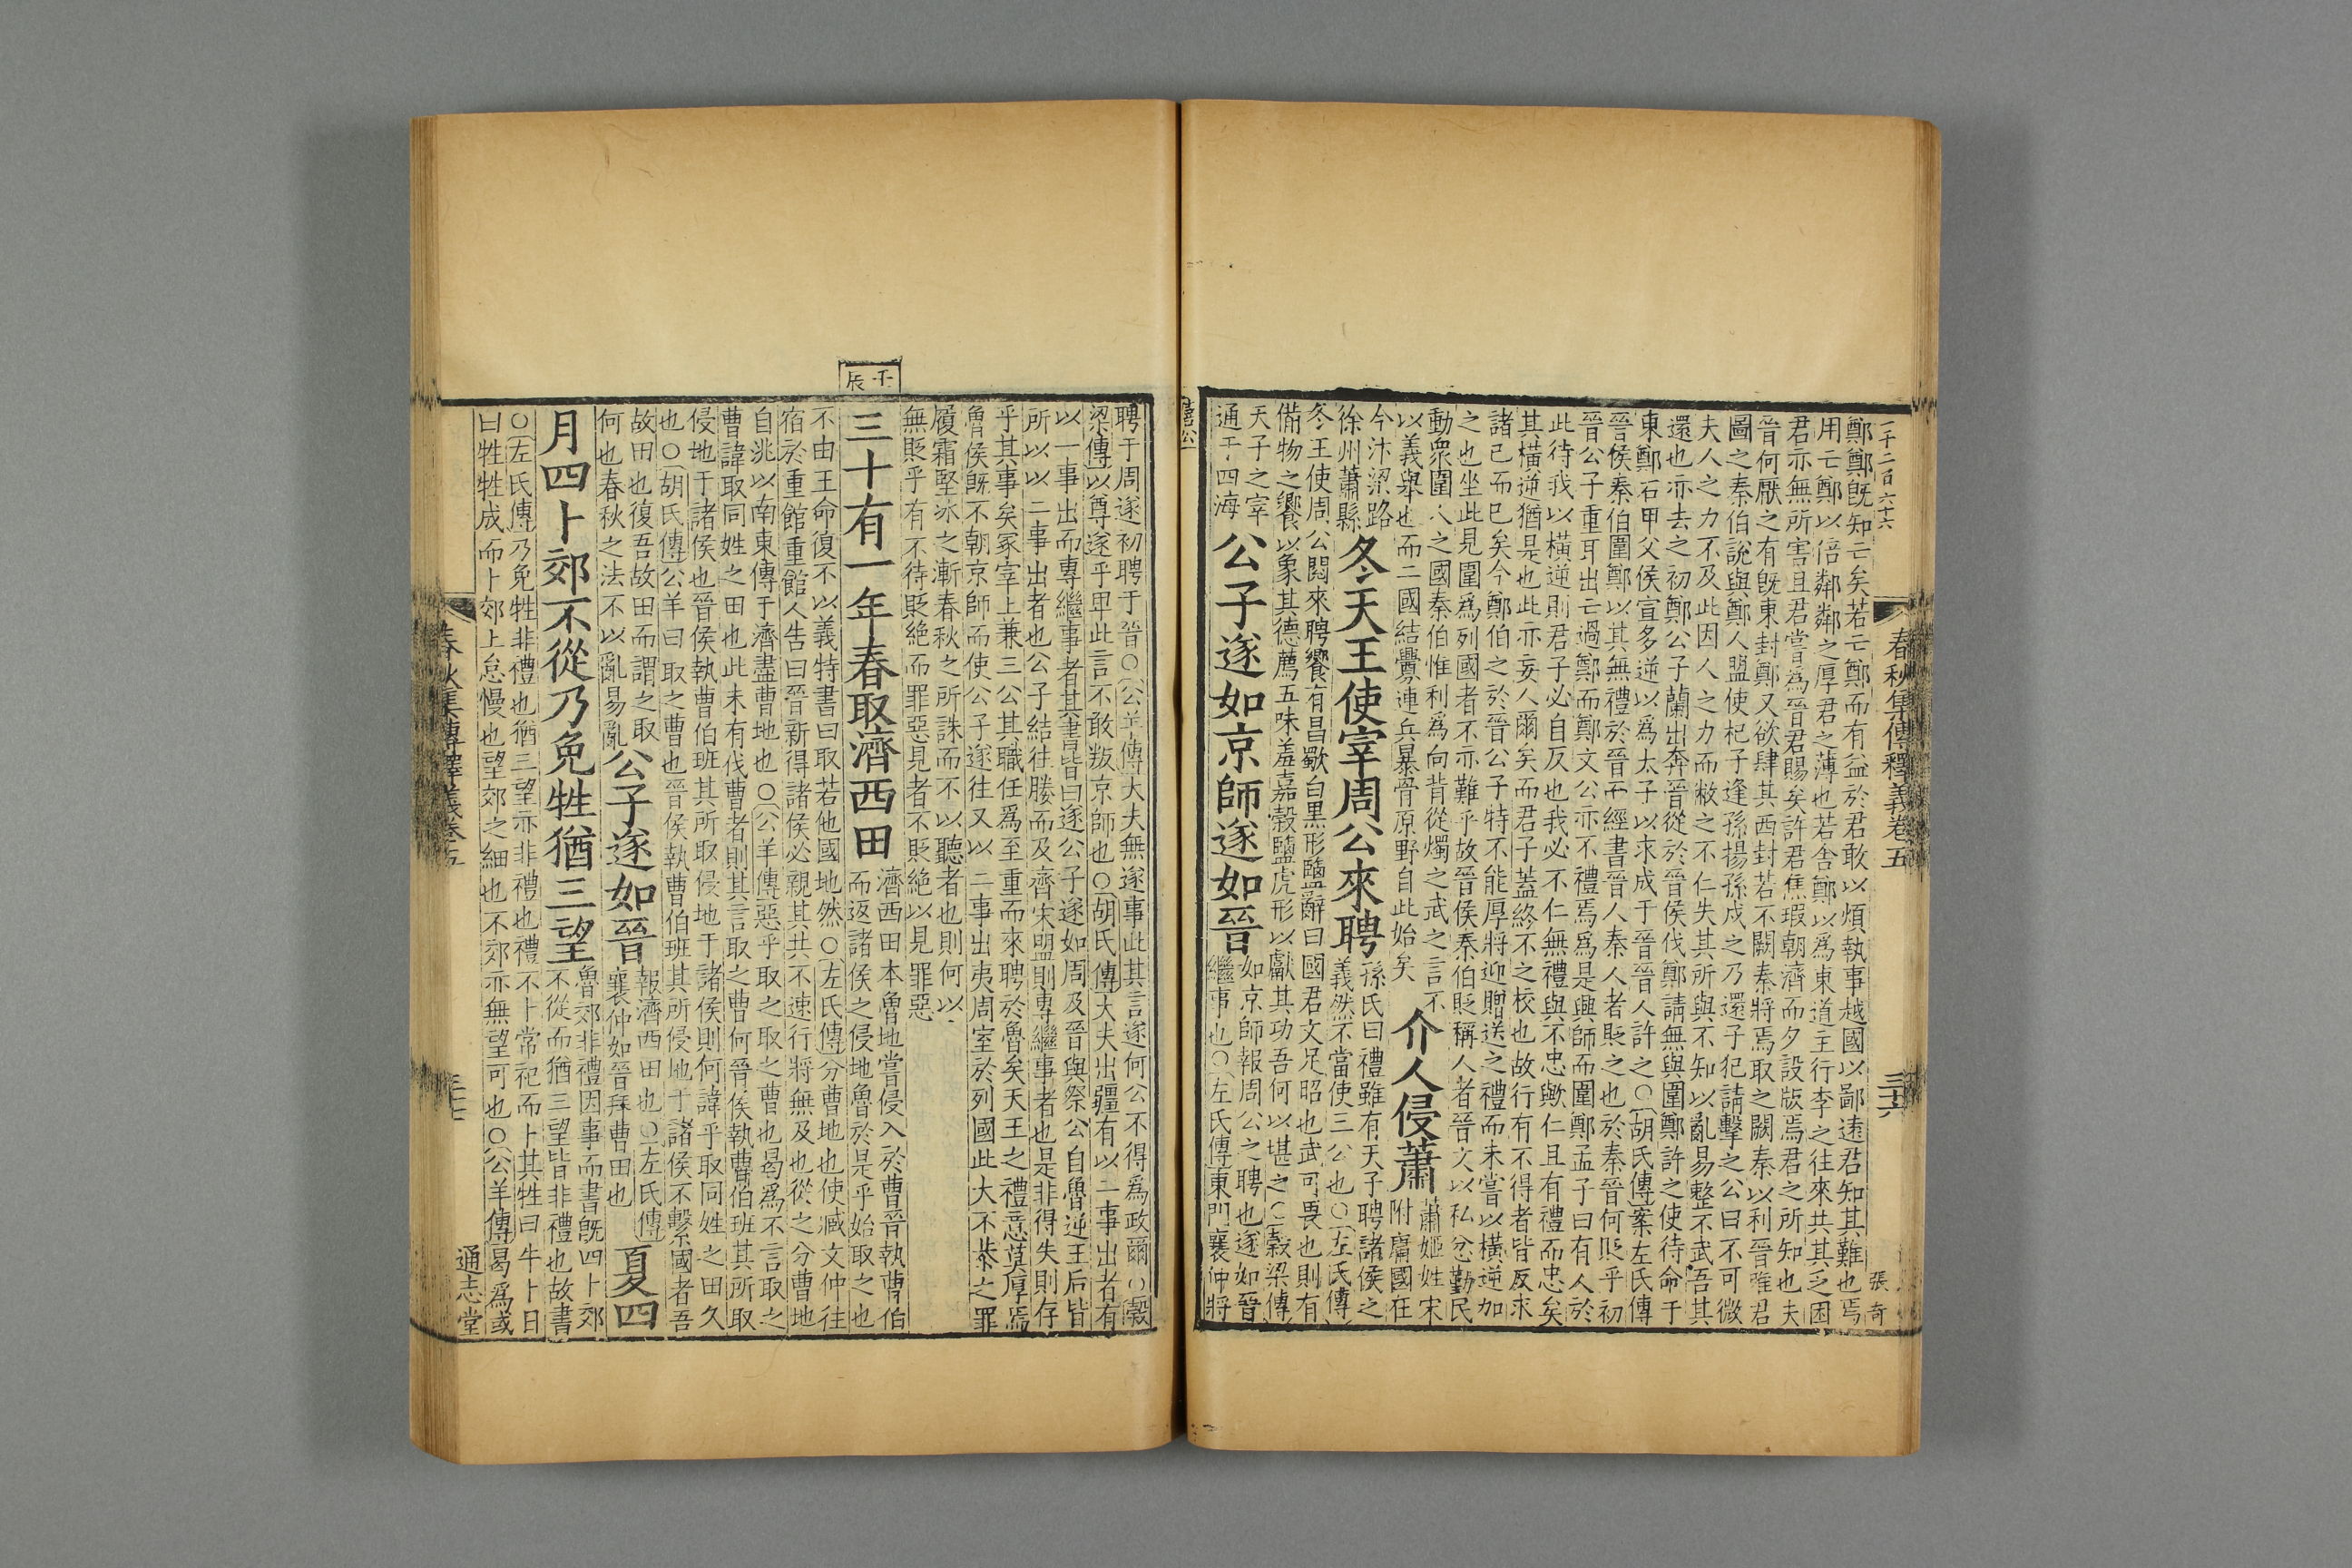 一千二百六十六
春秋集傳釋義卷五
三十六
張奇
鄭鄭旣知亡矣若亡鄭而有益於君敢以煩執事越國以鄙遠君知其難也焉
用亡鄭以倍鄰鄰之厚君之薄也若舍鄭以爲東道主行李之往來共其乏困
君亦無所害且君嘗爲晉君賜矣許君焦瑕朝濟而夕設版焉君之所知也夫
晉何厭之有旣東封鄭又欲肆其西封若不闕秦將焉取之闕秦以利晉唯君
圖之秦伯說與鄭人盟使杞子逢孫揚孫戍之乃還子犯請擊之公曰不可微
夫人之力不及此因人之力而敝之不仁失其所與不知以亂易整不武吾其
還也亦去之初鄭公子蘭出奔晉從於晉侯伐鄭請無與圍鄭許之使待命于
東鄭石甲父侯宣多逆以爲太子以求成于晉晉人許之○胡氏傳案左氏傳
晉侯秦伯圍鄭以其無禮於晉而經書晉人秦人者貶之也於秦晉何貶乎初
晉公子重耳出亡過鄭而鄭文公亦不禮焉爲是興師而圍鄭孟子曰有人於
此待我以橫逆則君子必自反也我必不仁無禮與不忠歟仁且有禮而忠矣
其橫逆猶是也此亦妄人爾矣而君子蓋終不之校也故行有不得者皆反求
諸己而已矣今鄭伯之於晉公子特不能厚將迎贈送之禮而未嘗以橫逆加
之也坐此見圍爲列國者不亦難乎故晉侯秦伯貶稱人者晉文以私忿勤民
動衆圍人之國秦伯惟利爲向背從燭之武之言不
以義舉也而二國結釁連兵暴骨原野自此始矣
介人侵蕭
蕭姬姓宋
附庸國在
今汴梁路
徐州蕭縣
冬天王使宰周公來聘
孫氏曰禮雖有天子聘諸侯之
義然不當使三公也○左氏傳
冬王使周公閱來聘饗有昌歜白黑形鹽辭曰國君文足昭也武可畏也則有
備物之饗以象其德薦五味羞嘉穀鹽虎形以獻其功吾何以堪之○穀梁傳
天子之宰
通于四海
公子遂如京師遂如晉
如京師報周公之聘也遂如晉
繼事也○左氏傳東門襄仲將
聘于周遂初聘于晉○公羊傳大夫無遂事此其言遂何公不得爲政爾○穀
梁傳以尊遂乎卑此言不敢叛京師也○胡氏傳大夫出疆有以二事出者有
以一事出而專繼事者其書皆曰遂公子遂如周及晉與祭公自魯逆王后皆
所以以二事出者也公子結往媵而及齊宋盟則專繼事者也是非得失則存
乎其事矣冢宰上兼三公其職任爲至重而來聘於魯矣天王之禮意莫厚焉
魯侯旣不朝京師而使公子遂往又以二事出夷周室於列國此大不恭之罪
履霜堅冰之漸春秋之所誅而不以聽者也則何以
無貶乎有不待貶絶而罪惡見者不貶絶以見罪惡
壬辰
三十有一年春取濟西田
濟西田本魯地嘗侵入於曹晉執曹伯
而返諸侯之侵地魯於是乎始取之也
不由王命復不以義特書曰取若他國地然○左氏傳分曹地也使臧文仲往
宿於重館重館人告曰晉新得諸侯必親其共不速行將無及也從之分曹地
自洮以南東傳于濟盡曹地也○公羊傳惡乎取之取之曹也曷爲不言取之
曹諱取同姓之田也此未有伐曹者則其言取之曹何晉侯執曹伯班其所取
侵地于諸侯也晉侯執曹伯班其所取侵地于諸侯則何諱乎取同姓之田久
也○胡氏傳公羊曰取之曹也晉侯執曹伯班其所侵地于諸侯不繫國者吾
故田也復吾故田而謂之取
何也春秋之法不以亂易亂
公子遂如晉
報濟西田也○左氏傳
襄仲如晉拜曹田也
夏四
月四卜郊不從乃免牲猶三望
魯郊非禮因事而書旣四卜郊
不從而猶三望皆非禮也故書
○左氏傳乃免牲非禮也猶三望亦非禮也禮不卜常祀而卜其牲曰牛卜日
曰牲牲成而卜郊上怠慢也望郊之細也不郊亦無望可也○公羊傳曷爲或
春秋集傳釋義卷五
三十七
通志堂